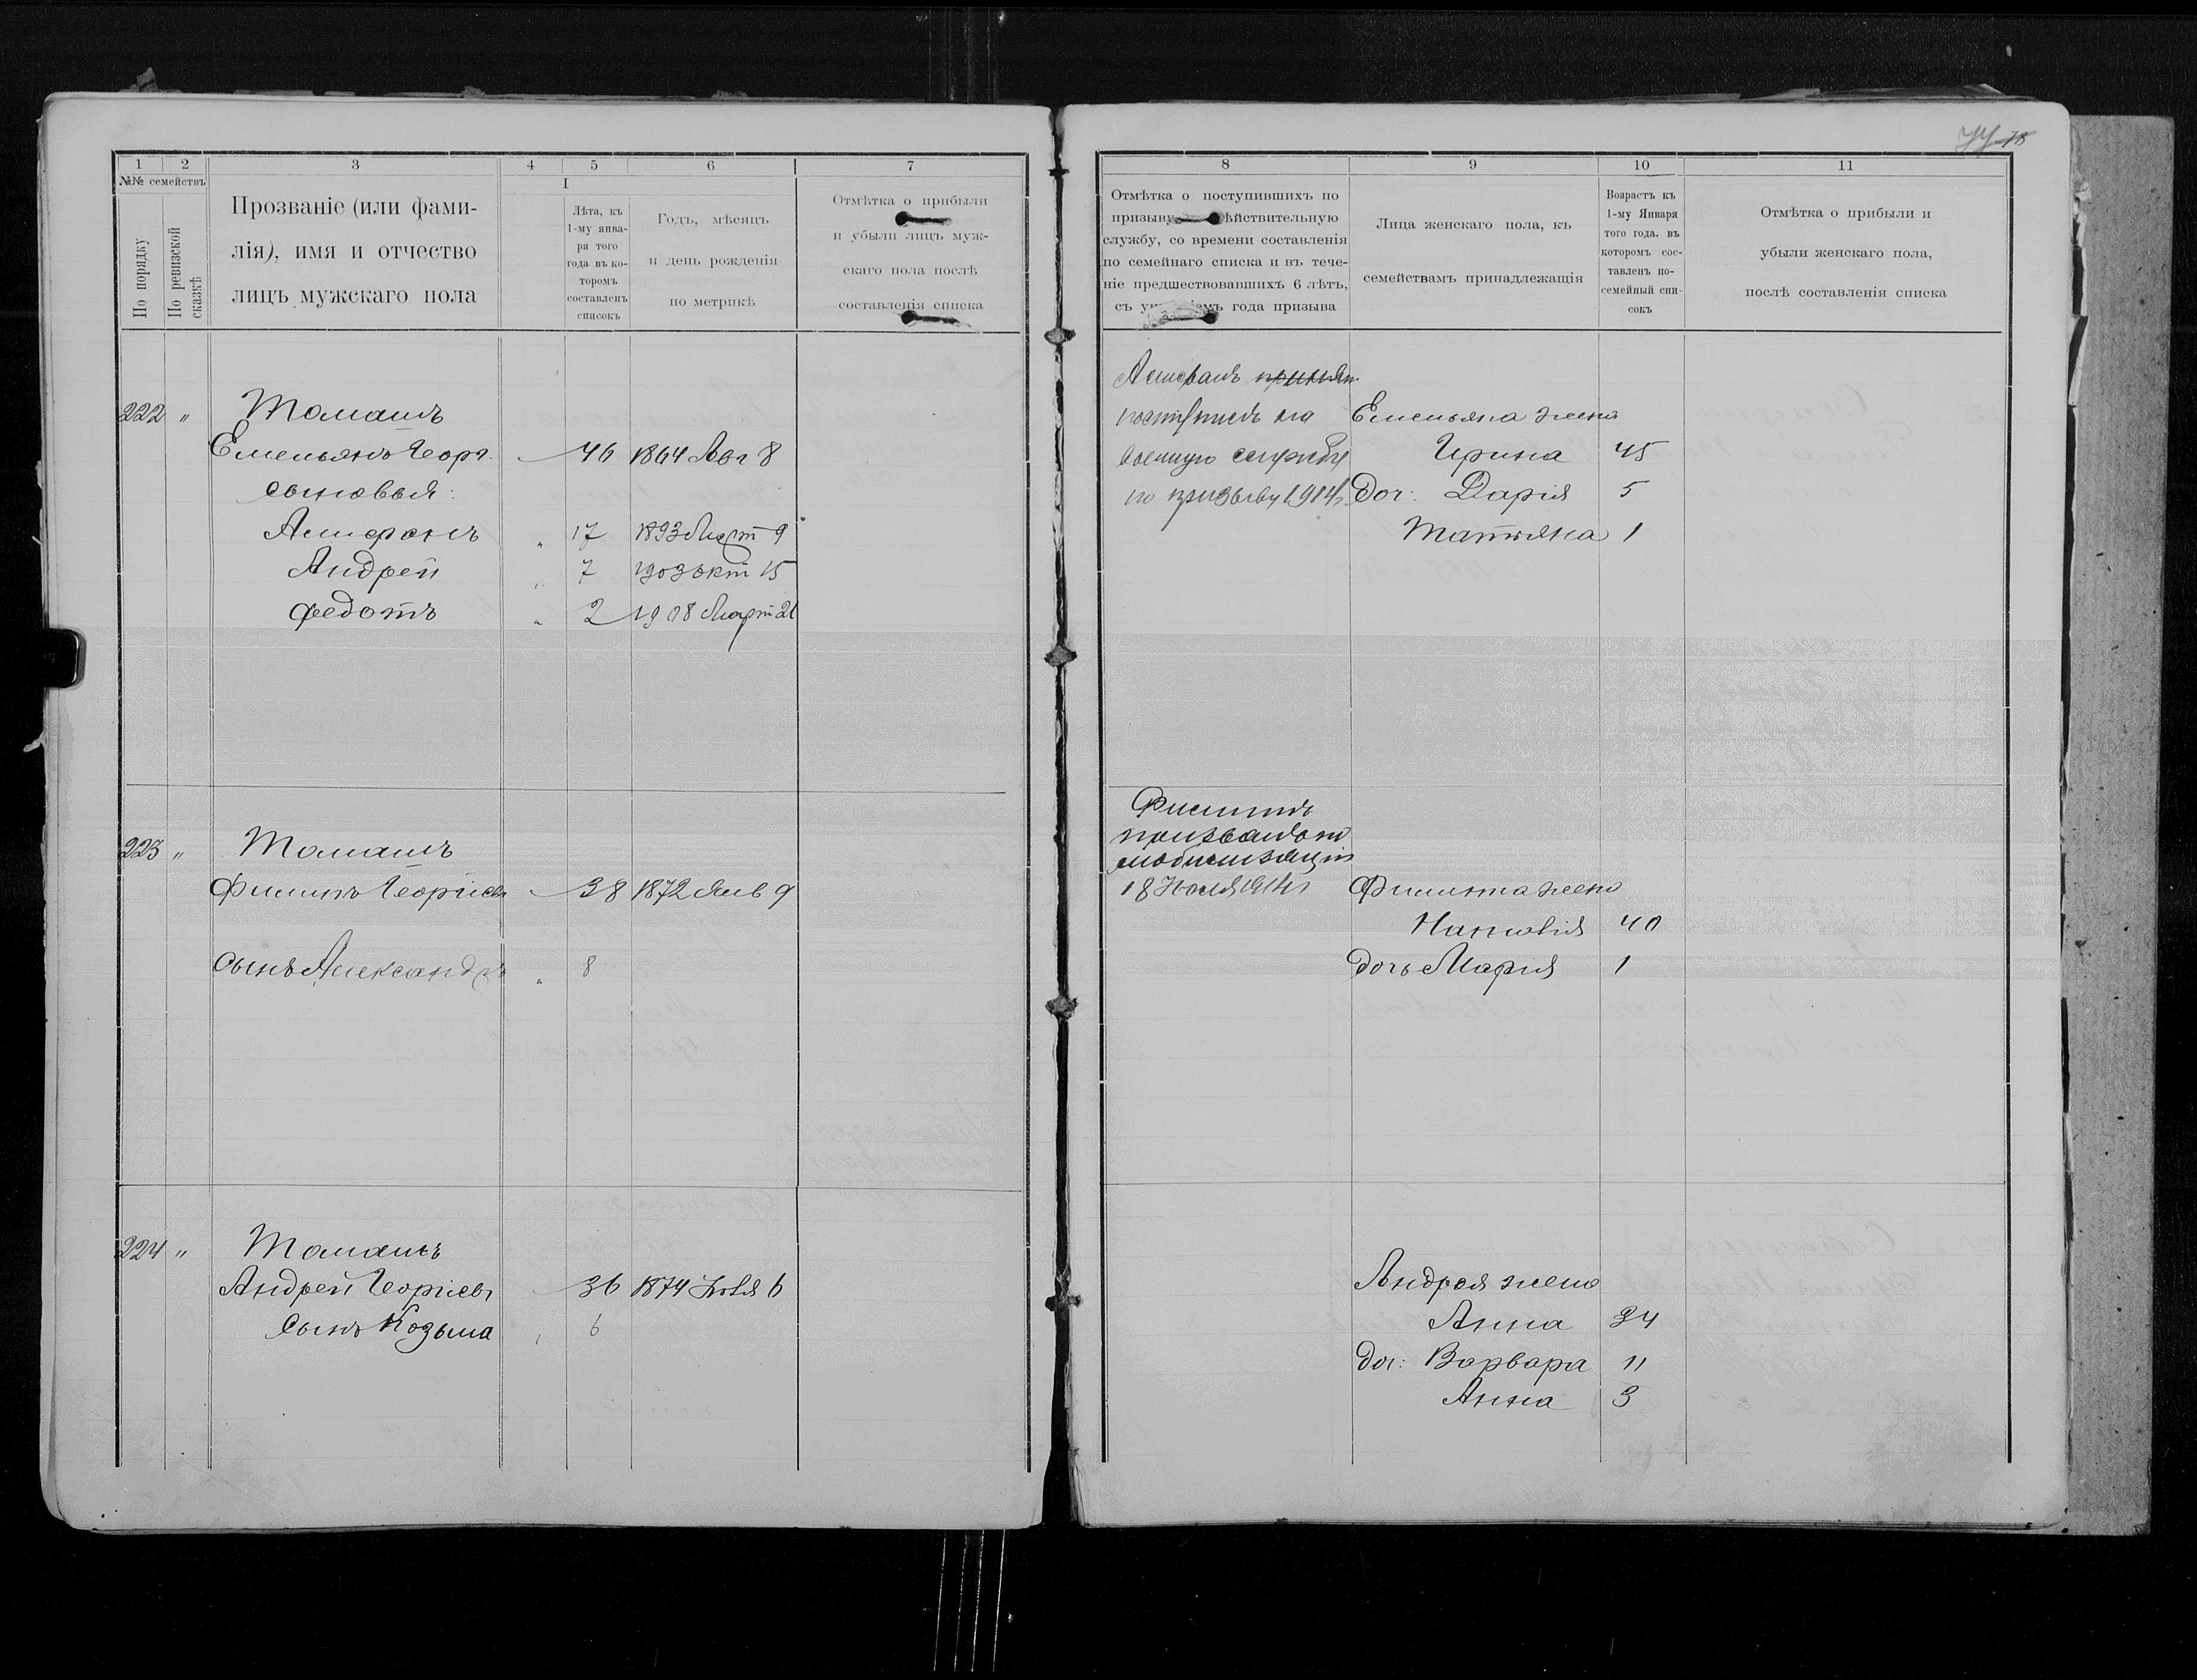 77 78
1 2 3 4 5 6 7
№№ семействъ
По порядку
По ревизской сказкѣ
Прозваніе (или фами-
лія), имя и отчество
лицъ мужскаго пола
I
Лѣта, къ
1-му янва-
ря того
года въ ко-
торомъ
составленъ
списокъ
Годъ, мѣсяцъ
и день рожденія
по метрикѣ
Отмѣтка о прибыли
и убыли лицъ муж-
скаго пола послѣ
составленія списка
8 9 10 11
Отмѣтка о поступившихъ по
призыву ѣйствительную
службу, со времени составленія
по семейнаго списка и въ тече-
ніе предшествовавшихъ 6 лѣтъ,
съ года призыва
Лица женскаго пола, къ
семействамъ принадлежащія
Возрастъ къ
1-му Января
того года. въ
которомъ сос-
тавленъ по-
семейный спи-
сокъ
Отмѣтка о прибыли и
убыли женскаго пола,
послѣ составленія списка
222 " Томашъ
Емельянъ Георг. 46 1864 Авг 8
сыновья:
" 17 1893 9
Андрей " 7 1903 Окт 15
Федотъ " 2 1908 Март 21
на
военную службу
по призыву 1914 г.
Емельяна жена
Ирина 45
Доч: Дарія 5
Татіяна 1
223 " Томашъ
Филипъ Георгіев 38 1872 Янв 9
Сынъ Александръ " 8
Филиппъ
призванъ по
мобилизаціи
18 Іюля 1914 г
Филиппа жена
40
дочь Марія 1
224 " Томашъ
Андрей Георгіев 36 1874 6
Сынъ Козьма " 6
Андрея жена
Анна 34
доч: Варвара 11
Анна 3